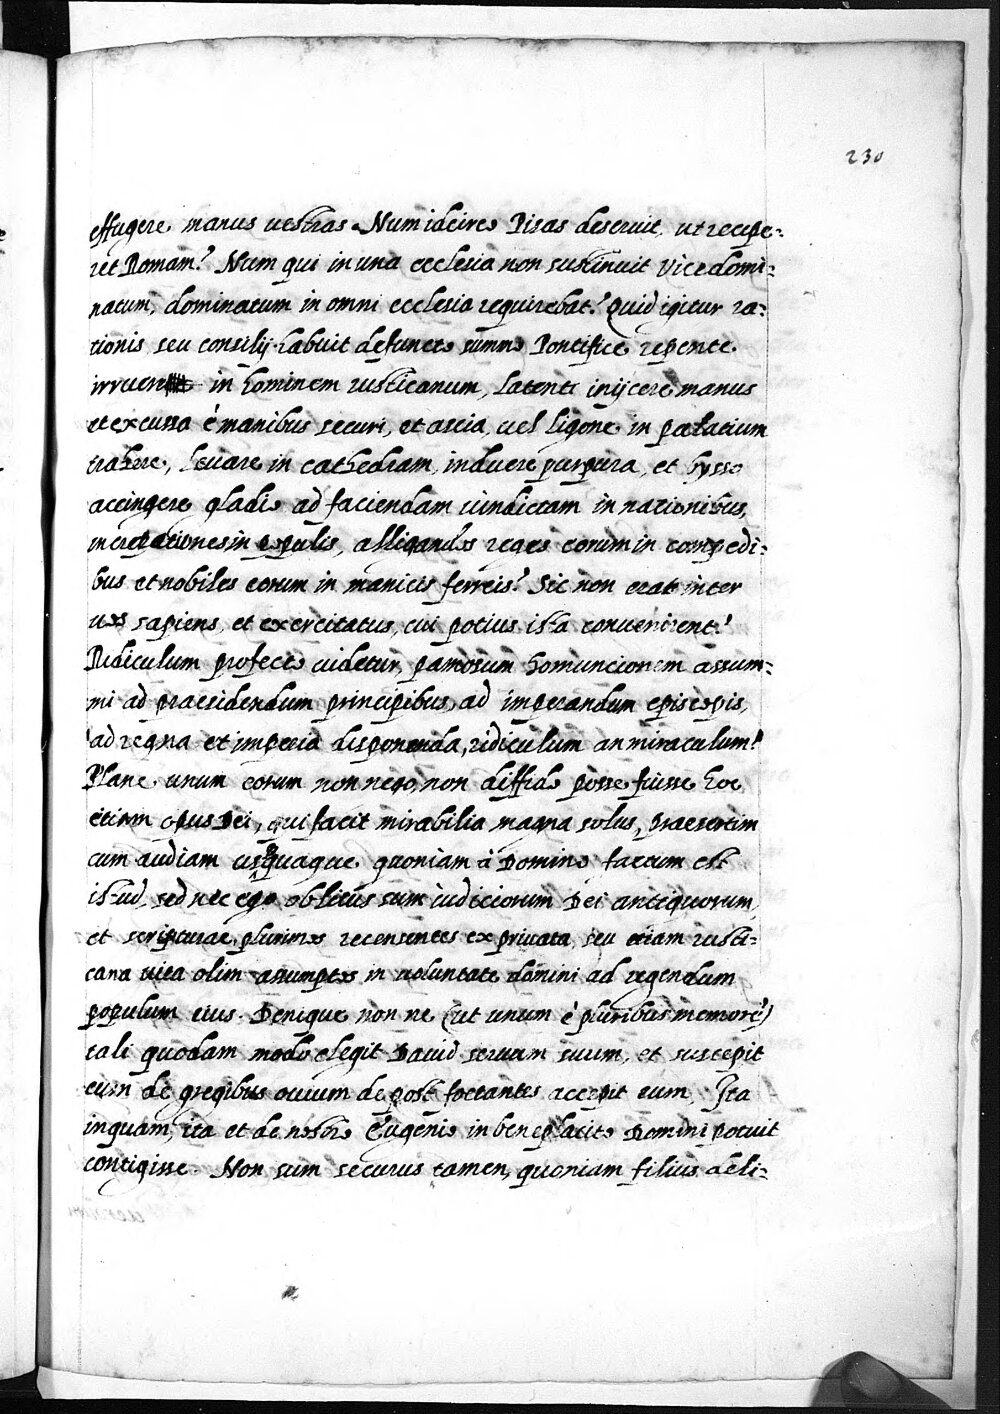 230
effugere manus uestras. Num idcirco Pisas deseruit, ut recipe-
ret Romam? Num qui in una ecclesia non sustinuit vicedomi-
natum, dominatum in omni ecclesia requirebat? Quid igitur ra-
tionis, seu consilij habuit defuncto summo Pontifice repente
irruere in hominem rusticanum, latenti inijcere manus
et excussa è manibus securi, et ascia, uel ligone in palatium
trahere, leuare in cathedram, induere purpura, et bysso
accingere gladio ad faciendam uindictam in nationibus,
increpationes in populis, alligandos reges eorum in compedi-
bus et nobiles eorum in manicis ferreis? Sic non erat inter
uos sapiens, et exercitatus, cui potius ista conuenirent?
Ridiculum profecto uidetur, pannosum homuncionem assum-
mi ad praesidendum principibus, ad imperandum episcopis,
ad regna et imperia disponenda, ridiculum an miraculum?
Plane unum eorum non nego, non diffido posse fuisse hoc
etiam opus Dei, qui facit mirabilia magna solus, praesertim
cum audiam usquaque quoniam à Domino factum est
istud, sed nec ego oblitus sum iudiciorum Dei antiquorum,
et scripturae, plurimos recensentes ex priuata, seu etiam rusti-
cana uita olim assumptos in uoluntate domini ad regendum
populum eius. Denique non ne (ut unum è pluribus memoré)
tali quodam modo elegit Dauid seruum suum, et suscepit
eum de gregibus ouium de post foetantes accepit eum. Ita
inquam, ita et de nostro Eugenio in beneplacito Domini potuit
contigisse. Non sum securus tamen, quoniam filius deli-